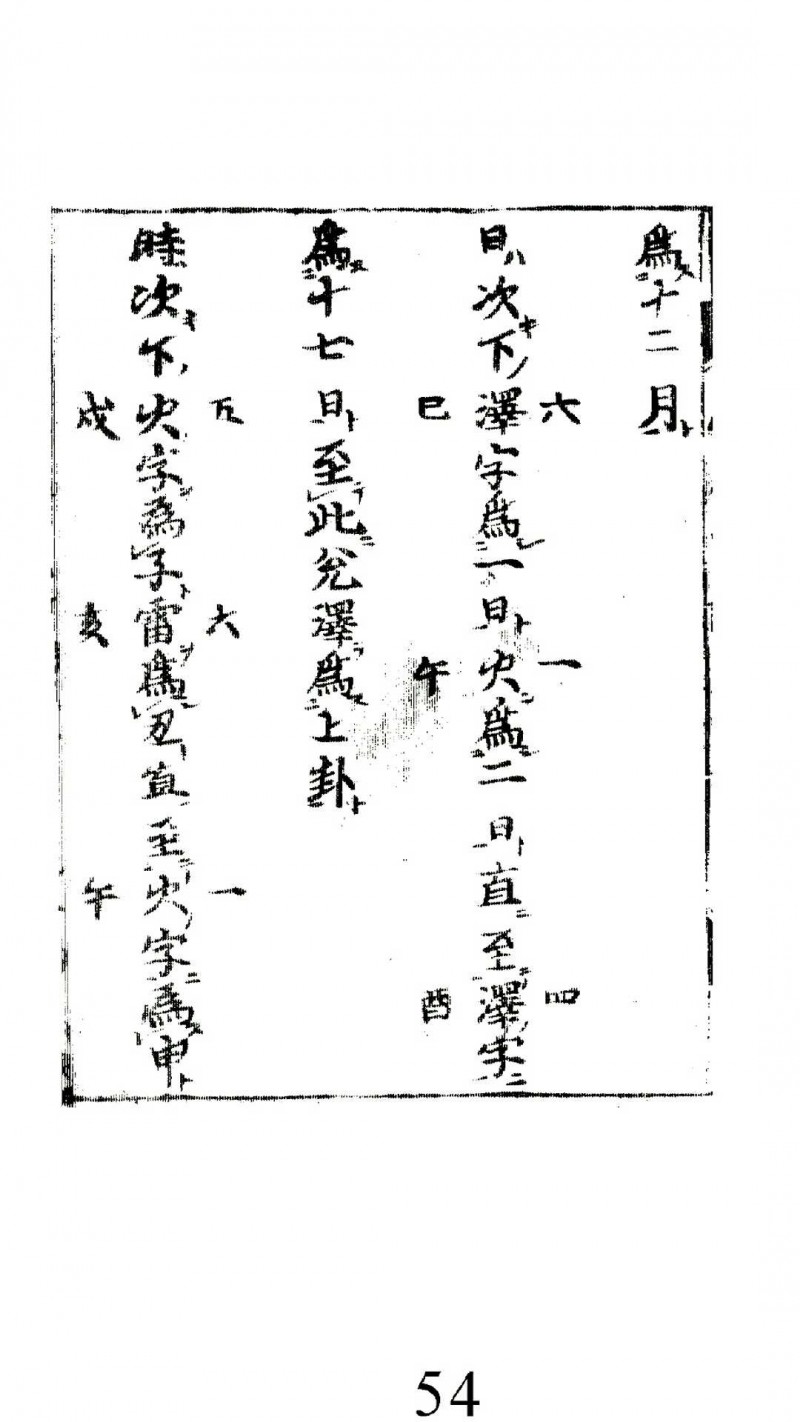 爲十二月
六 一 四
日次下澤字爲一日火爲二日直至澤字
巳 午 酉
爲十七日至此兌澤爲上卦
五 六 一
時次下火字爲子雷爲丑直至火字爲申
戌 亥 午
54